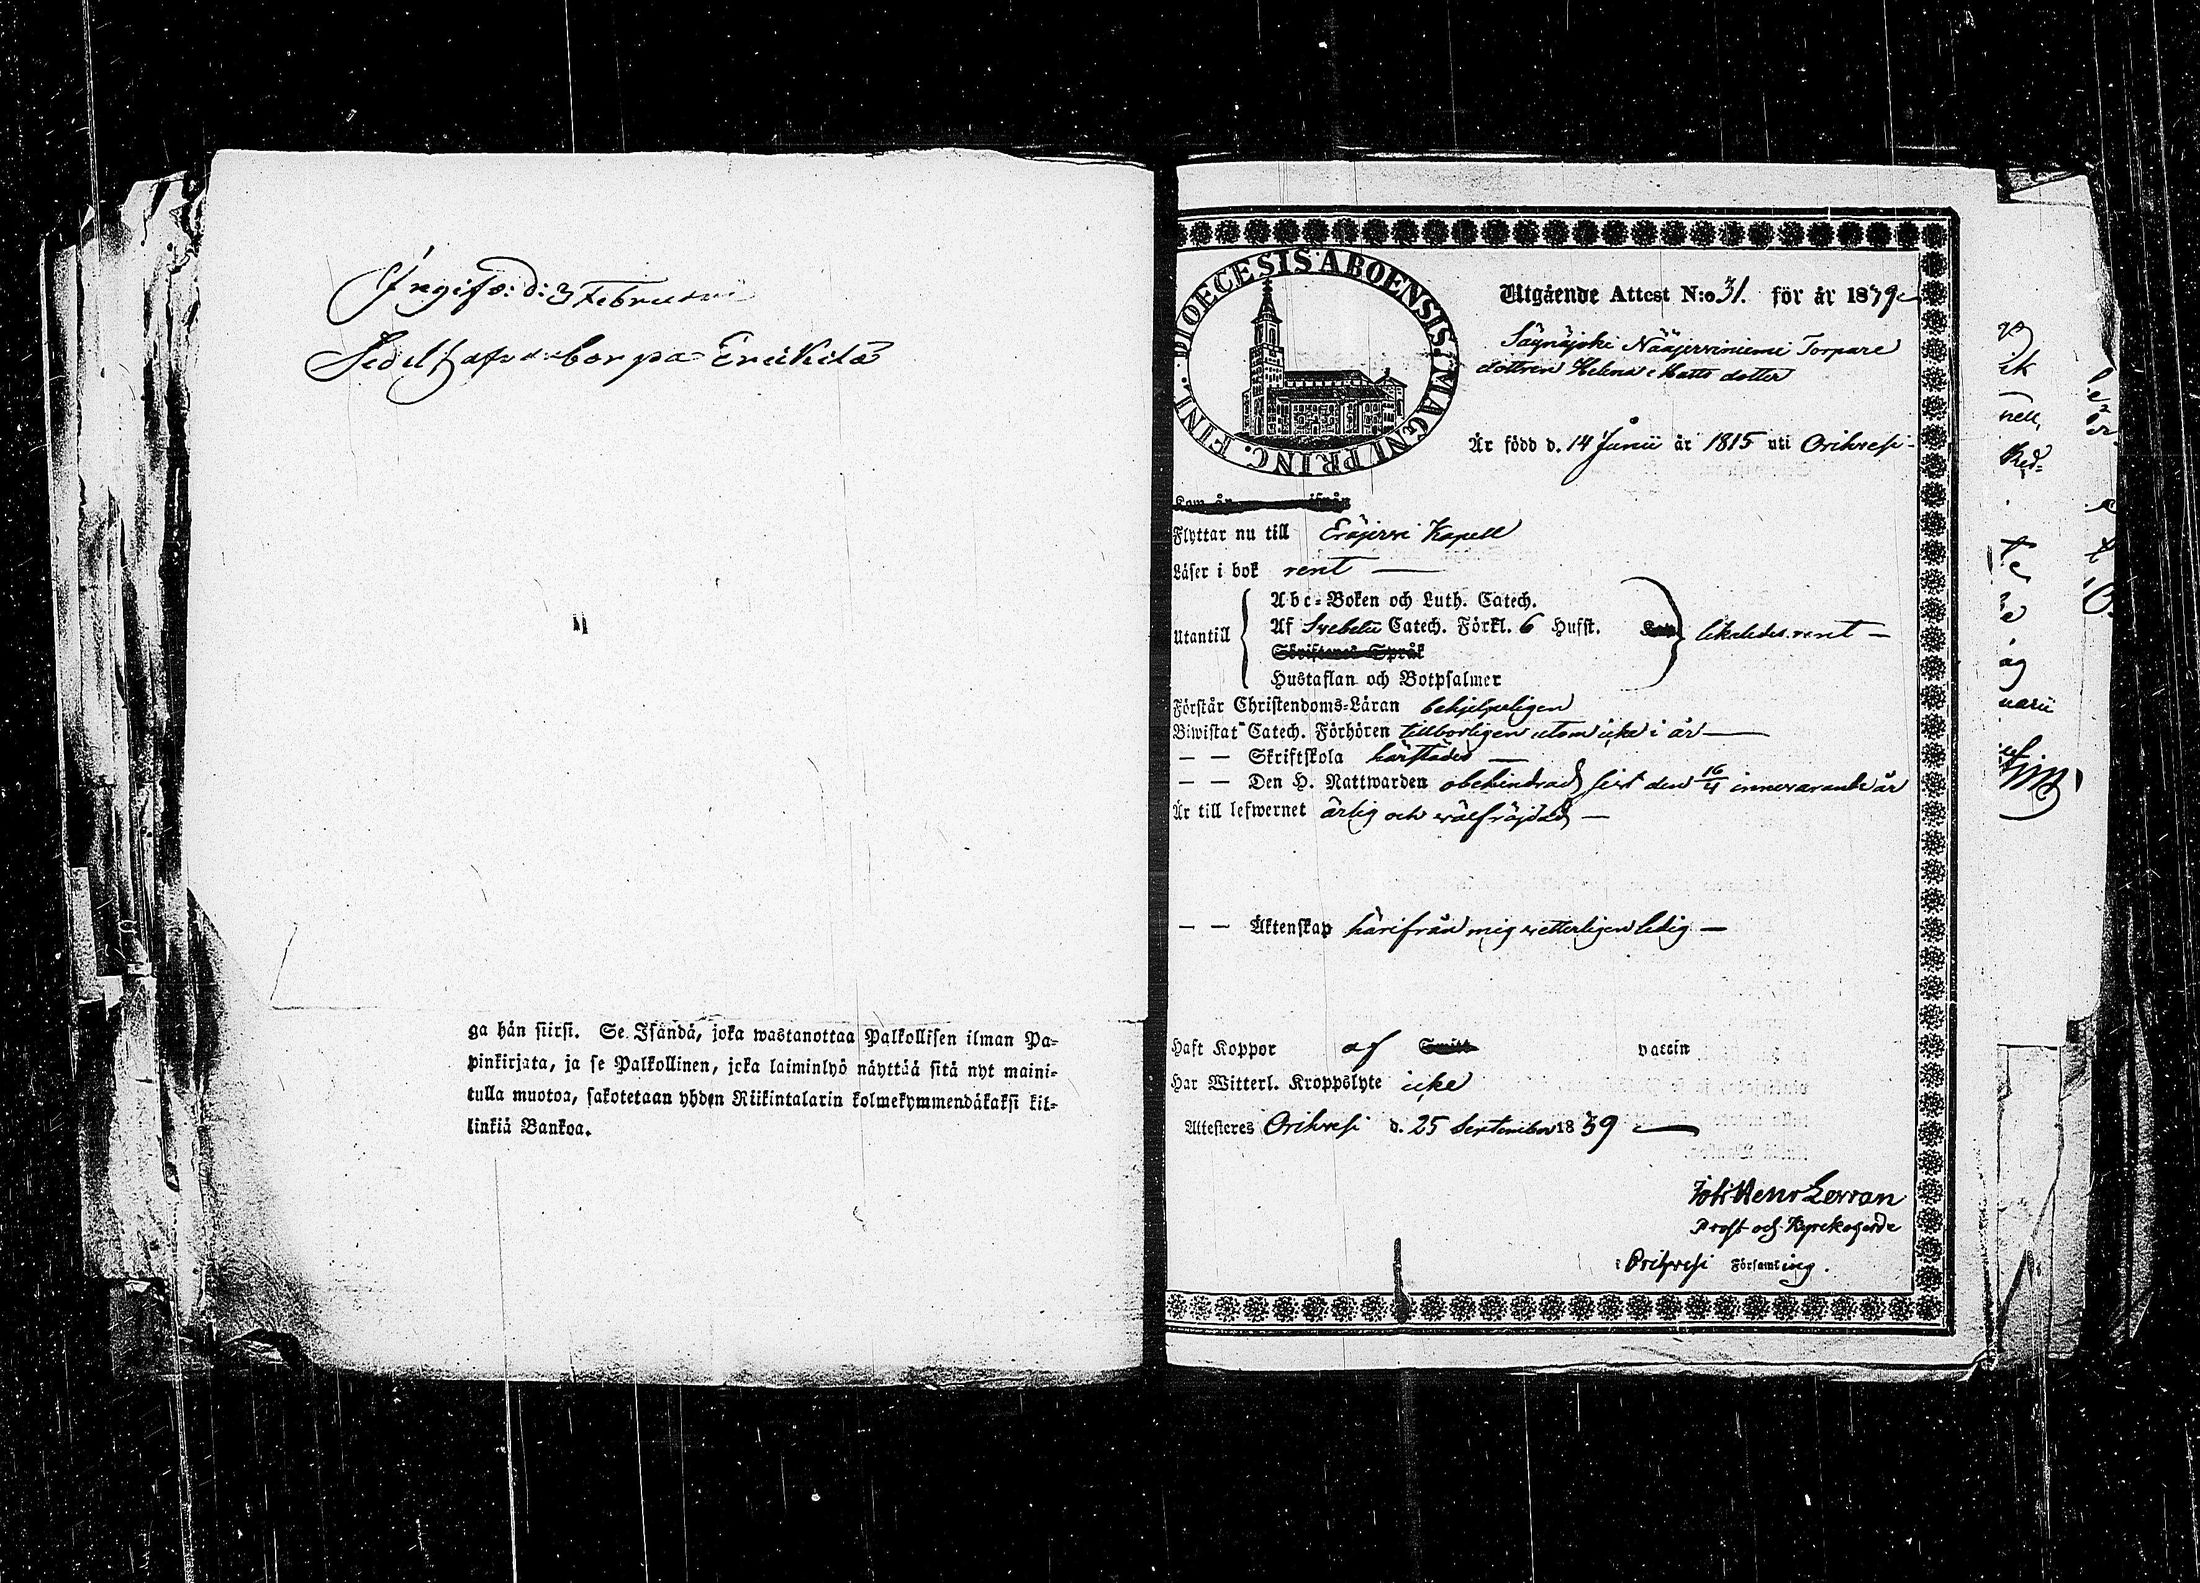 Ingifv: d: 3 Februari
Erikilä
ga hän siirsi. Se Isändä, joka wastanottaa Palkollisen ilman Pa-
pinkirjata, ja se Palkollinen, joka laiminlyö näyttää sitä nyt maini-
tulla muotoa, sakotetaan yhden Riikintalarin kolmekymmendäkaksi kil-
linkiä Bankoa.
DIOECESIS ABOENSIS. MAGNI PRINC. FINL.
Utgående Attest N:o 31. för år 1839
Säynäjoki Nääjerviniemi Torpare
dottren Helena Matts dotter
Är född d. 14 Junii år 1815 uti Orihvesi
Kom år ifrån
Flyttar nu till Eräjervi Kapell
Läser i bok rent
Utantill
Abc-Boken och Luth. Catech.
Af Svebelii Catech. Förkl. 6 Hufst. likaledes rent
Skriftenes Språk
Hustaflan och Botpsalmer
Förstår Christendoms-Läran behjelpeligen
Biwistat Catech. Förhören tillbörligen utom icke i år
— — Skriftskola härstädes
— — Den H. Nattwarden obehindrad sist den 16/4 innevarande år
Är till lefwernet ärlig och välfräjdad
— — Äktenskap härifrån mig vetterligen ledig
Haft Koppor af vaccin
Har Witterl. Kroppslyte icke
Attesteres Orihvesi d. 25 September 1839
Joh: Henr
Prost och Kyrkoherde
i Orihvesi Församling.
ik
nell,
Red-
te
åg
uarii